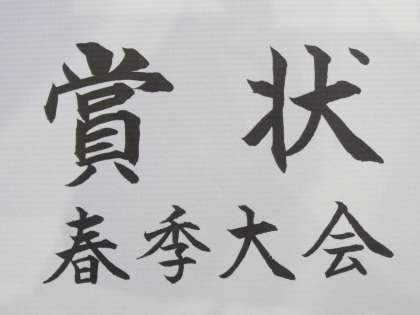 賞状
春季大会